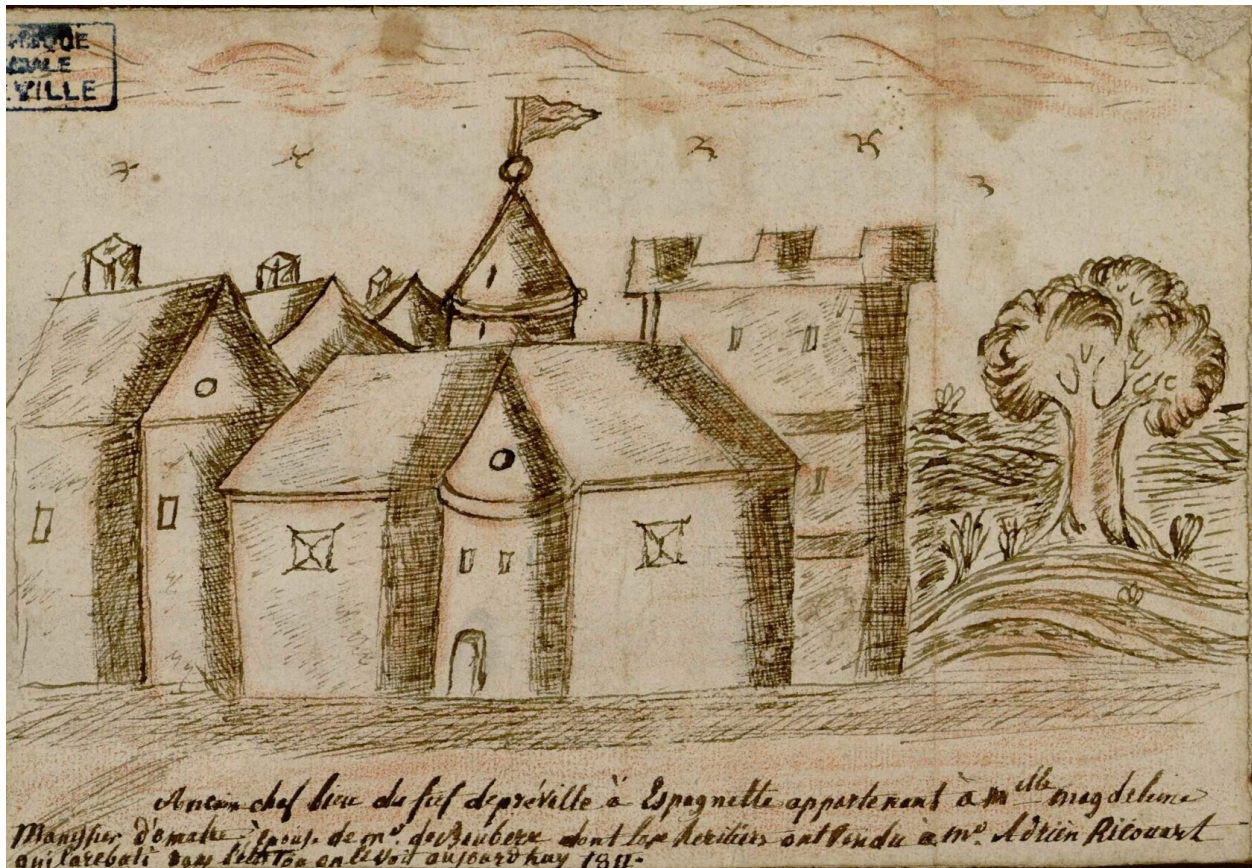 QUE
ALE
VILLE
Ancien chef lieu du fief de préville à Espagnette appartenant à mlle magdeleine
épouse de mr. dont les heritiers ont vendu à mr. Adrien Ricouart
qui la rebati dans on le voit aujourdhuy 181